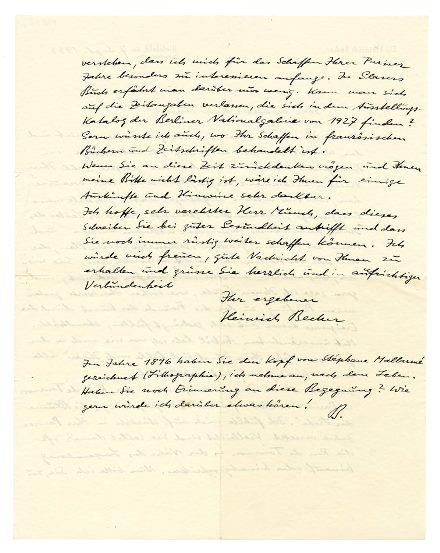 verstehen, dass ich mich für das Schaffen Ihrer Pariser
Jahre besonders zu interessieren anfange. In Glasers
Buch erfährt man darüber nur wenig. Kann man sich
auf die Zeitangaben verlassen, die sich in dem Ausstellungs-
Katalog der Berliner Nationalgalerie von 1927 finden?
Gern wüsste ich auch, wo Ihr Schaffen in französischen
Büchern und Zeitschriften behandelt ist.
Wenn Sie an diese Zeit zurückdenken mögen und Ihnen
meine Bitte nicht lästig ist, wäre ich Ihnen für einige
Auskünfte und Hinweise sehr dankbar.
Ich hoffe, sehr verehrter Herr Munch, dass dieses
Schreiben Sie bei guter Gesundheit antrifft und dass
Sie noch immer rüstig weiter schaffen können. Ich
würde mich freuen, gute Nachricht von Ihnen zu
erhalten und grüsse Sie herzlich und in aufrichtiger
Verbundenheit
Ihr ergebener
Heinrich Becker
Im Jahre 1896 haben Sie den Kopf von Stéphane Mallarmé
gezeichnet (Lithographie), ich nehme an, nach dem Leben.
Haben Sie noch Erinnerung an diese Begegnung? Wie
gern würde ich darüber etwas hören!
B.